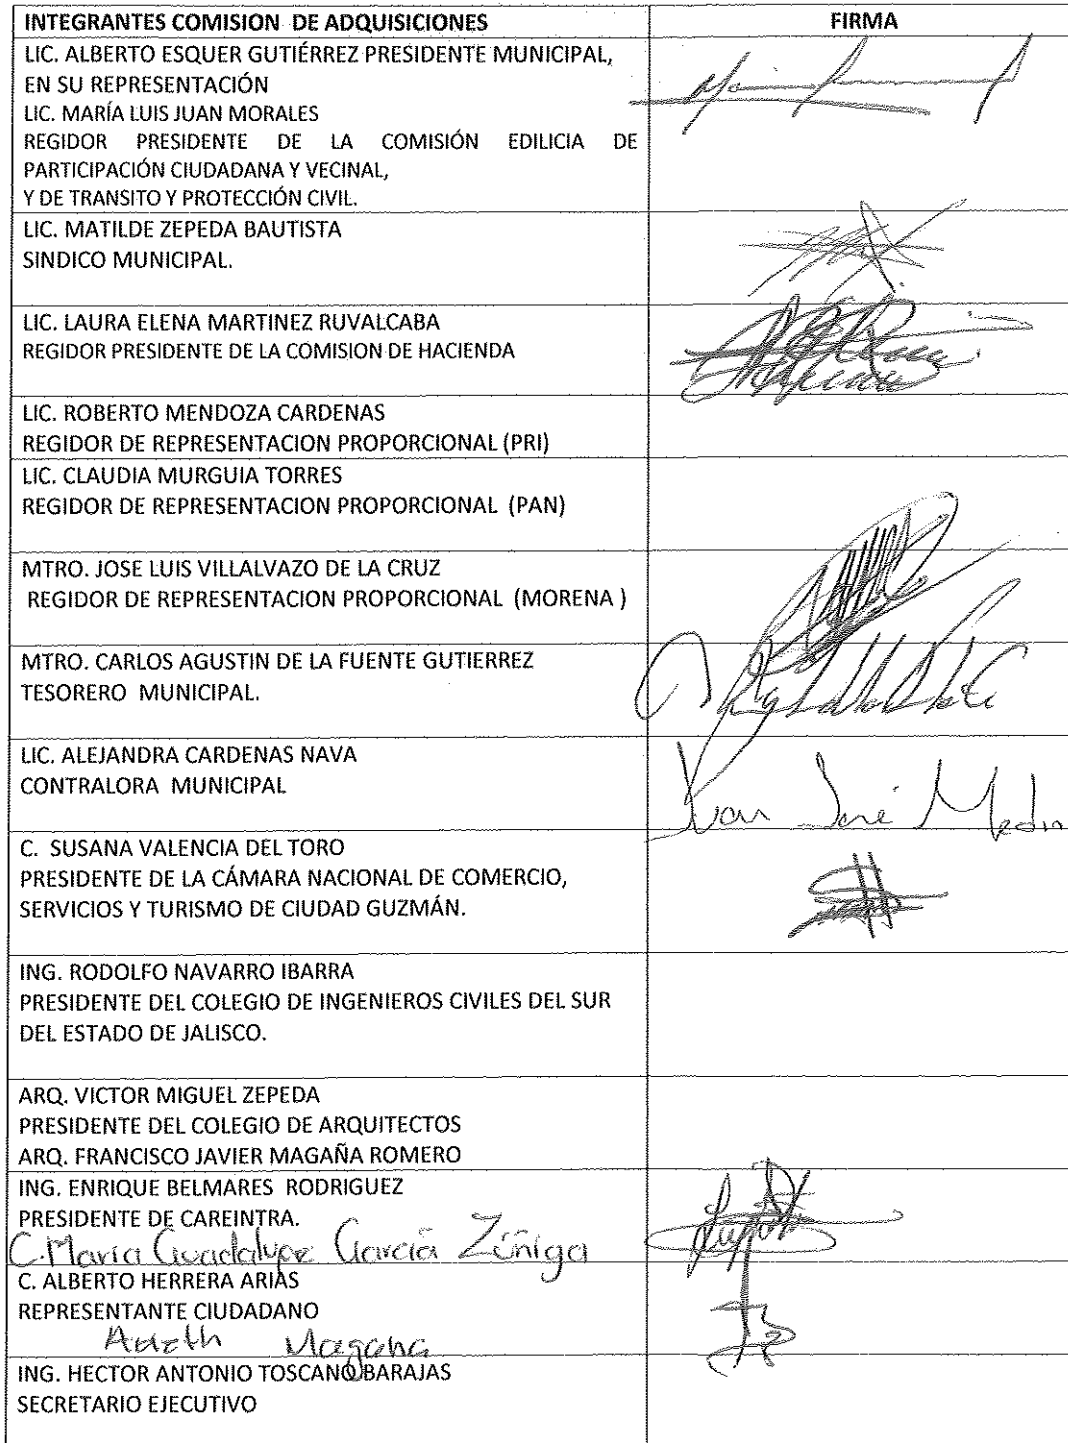 INTEGRANTES COMISION DE ADQUISICIONES
FIRMA
LIC. ALBERTO ESQUER GUTIÉRREZ PRESIDENTE MUNICIPAL,
EN SU REPRESENTACIÓN
LIC. MARÍA LUIS JUAN MORALES
REGIDOR PRESIDENTE DE LA COMISIÓN EDILICIA DE
PARTICIPACIÓN CIUDADANA Y VECINAL,
Y DE TRANSITO Y PROTECCIÓN CIVIL.
LIC. MATILDE ZEPEDA BAUTISTA
SINDICO MUNICIPAL.
LIC. LAURA ELENA MARTINEZ RUVALCABA
REGIDOR PRESIDENTE DE LA COMISION DE HACIENDA
LIC. ROBERTO MENDOZA CARDENAS
REGIDOR DE REPRESENTACION PROPORCIONAL (PRI)
LIC. CLAUDIA MURGUIA TORRES
REGIDOR DE REPRESENTACION PROPORCIONAL (PAN)
MTRO. JOSE LUIS VILLALVAZO DE LA CRUZ
REGIDOR DE REPRESENTACION PROPORCIONAL (MORENA )
MTRO. CARLOS AGUSTIN DE LA FUENTE GUTIERREZ
TESORERO MUNICIPAL.
LIC. ALEJANDRA CARDENAS NAVA
CONTRALORA MUNICIPAL
Juan José Medin
C. SUSANA VALENCIA DEL TORO
PRESIDENTE DE LA CÁMARA NACIONAL DE COMERCIO,
SERVICIOS Y TURISMO DE CIUDAD GUZMÁN.
ING. RODOLFO NAVARRO IBARRA
PRESIDENTE DEL COLEGIO DE INGENIEROS CIVILES DEL SUR
DEL ESTADO DE JALISCO.
ARQ. VICTOR MIGUEL ZEPEDA
PRESIDENTE DEL COLEGIO DE ARQUITECTOS
ARQ. FRANCISCO JAVIER MAGAÑA ROMERO
ING. ENRIQUE BELMARES RODRIGUEZ
PRESIDENTE DE CAREINTRA.
C. María Guadalupe García Zúñiga
C. ALBERTO HERRERA ARIAS
REPRESENTANTE CIUDADANO
Magaña
ING. HECTOR ANTONIO TOSCANO BARAJAS
SECRETARIO EJECUTIVO